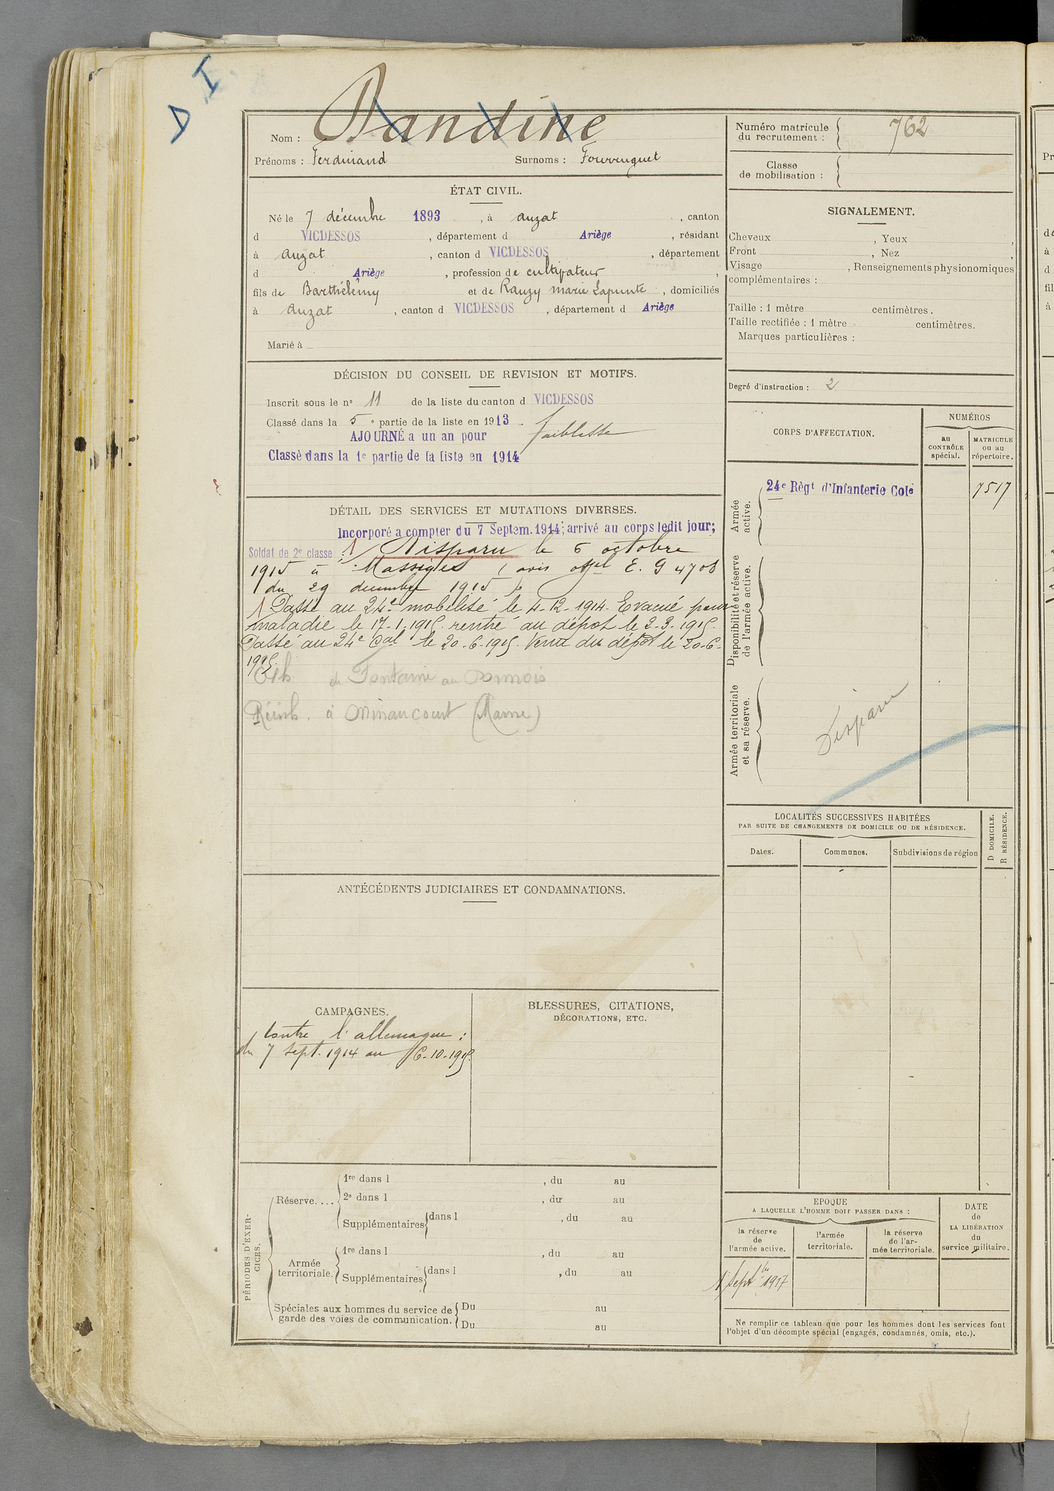 D I
Nom : Dandine
Prénoms : Ferdinand Surnoms :
ÉTAT CIVIL.
Né le 7 décembre 1893 , à Auzat , canton
d VICDESSOS , département d Ariège , résidant
à Auzat , canton d VICDESSOS , département
d Ariège , profession de cultivateur ,
fils de Barthélemy et de Rauzy Marie Lapunte , domiciliés
à Auzat , canton d VICDESSOS , département d Ariège
Marié à
DÉCISION DU CONSEIL DE REVISION ET MOTIFS.
Inscrit sous le nº 11 de la liste du canton d VICDESSOS
Classé dans la 5e partie de la liste en 1913
AJOURNÉ a un an pour faiblesse
Classé dans la 1e partie de la liste en 1914
DÉTAIL DES SERVICES ET MUTATIONS DIVERSES.
Incorporé a compter du 7 Septem. 1914; arrivé au corps ledit jour;
Soldat de 2e classe : 1/ Disparu le 6 octobre
1915 à Massiges (avis offel E. G 4708
du 29 décembre 1915
1 Passé au 24e mobilité le 4-12-1914. Evacué pour
maladie le 17-1-1915. rentré au dépôt le 2-3-1915.
Passé au 24e Cal le 20-6-1915. Venu du dépôt le 20-6-
1915.
de Fontaine en Dormois
Réinh. à Minaucourt (Marne)
ANTÉCÉDENTS JUDICIAIRES ET CONDAMNATIONS.
CAMPAGNES.
Contre l'allemagne :
du 7 Sept. 1914 au 6-10-1915.
BLESSURES, CITATIONS,
DÉCORATIONS, ETC.
PÉRIODES D'EXERCICES.
Réserve.... 1re dans l , du au
2e dans l , du au
Supplémentaires dans l , du au
Armée territoriale. 1re dans l , du au
Supplémentaires dans l , du au
Spéciales aux hommes du service de Du au
garde des voies de communication. Du au
Numéro matricule
du recrutement : 762
Classe
de mobilisation :
SIGNALEMENT.
Cheveux , Yeux ,
Front , Nez ,
Visage , Renseignements physionomiques
complémentaires :
Taille : 1 mètre centimètres.
Taille rectifiée : 1 mètre centimètres.
Marques particulières :
Degré d'instruction : 2
CORPS D'AFFECTATION.
NUMÉROS
au
CONTRÔLE
spécial.
MATRICULE
ou au
répertoire.
Armée
active.
24e Régt d'Infanterie Cole 7517
Disponibilité et réserve
de l'armée active.
Armée territoriale
et sa réserve.
Disparu
LOCALITÉS SUCCESSIVES HABITÉES
PAR SUITE DE CHANGEMENTS DE DOMICILE OU DE RÉSIDENCE.
D DOMICILE.
R RÉSIDENCE.
Dates. Communes. Subdivisions de région
EPOQUE
A LAQUELLE L'HOMME DOIT PASSER DANS :
la réserve
de
l'armée active.
l'armée
territoriale.
la réserve
de l'ar-
mée territoriale.
DATE
de
LA LIBÉRATION
du
service militaire.
1 Septbre 1917
Ne remplir ce tableau que pour les hommes dont les services font
l'objet d'un décompte spécial (engagés, condamnés, omis, etc.).